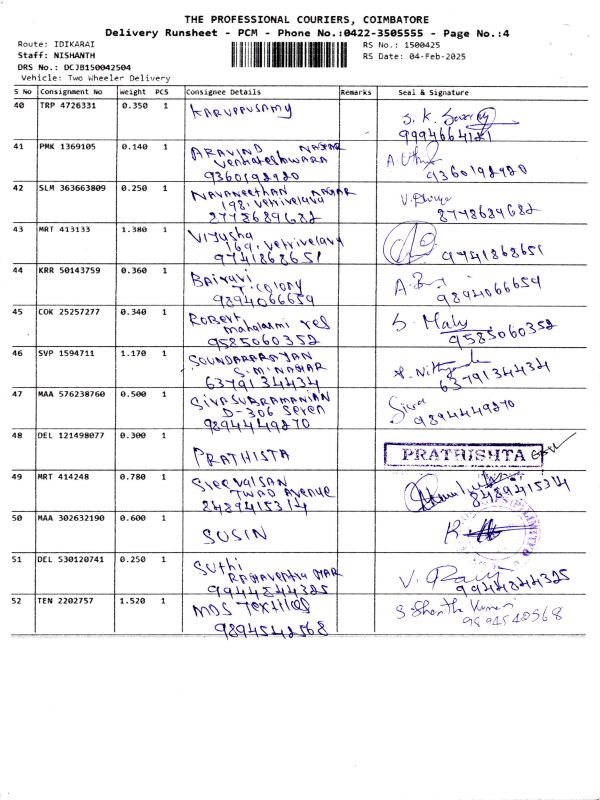 THE PROFESSIONAL COURIERS, COIMBATORE
Delivery Runsheet - PCM - Phone No.:0422-3505555 - Page No.:4
Route: IDIKARAI RS No.: 1500425
Staff: NISHANTH RS Date: 04-Feb-2025
DRS No.: DCJB150042504
Vehicle: Two Wheeler Delivery
S No Consignment No Weight PCS Consignee Details Remarks Seal & Signature
40 TRP 4726331 0.350 1 KARUPPUSAMY S. K.
9994664121
41 PMK 1369105 0.140 1 ARAVIND NAGAR
Venkateshwara
9360192920 9360192920
42 SLM 363663809 0.250 1 NAVANEETHAN NAGAR
198, Vetrivelava
8778689682 8778689682
43 MRT 413133 1.380 1 Viyusha
169, Vetrivelava
9741868651 9741868651
44 KRR 50143759 0.360 1 Bairavi
T. Colony
9894066659 9894066659
45 COK 25257277 0.340 1 Robert S. Maly
mahalaxmi res
9585060352 9585060352
46 SVP 1594711 1.170 1 SOUNDARARAJAN
S.M. NAGAR
6379134434 6379134434
47 MAA 576238760 0.500 1 SIVASUBRAMANIAN Siva
D-306 Seven
9894449270 9894449270
48 DEL 121498077 0.300 1 PRATHISTA PRATHISHTA
49 MRT 414248 0.780 1 Sreevalsan
TWAD Avenue
8489415314 8489415314
50 MAA 302632190 0.600 1 SUSIN
51 DEL 530120741 0.250 1 Suthi
9944844325 9944844325
52 TEN 2202757 1.520 1 MDS Textiles S Shantha Kumari
9894542568 9894540568